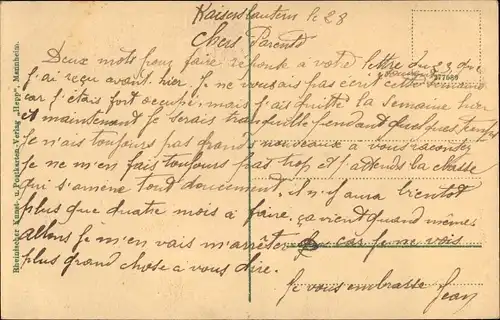 Kaiserslautern le 28
Chers Parents
Deux mots pour faire réponse à votre lettre du 23 que
j'ai reçu avant hier. Je ne vous ais pas écrit cette semaine
car j'étais fort occupé, mais j'ai quitté la semaine hier
et maintenant je serais tranquille pendant quelques temps
Je n'ais toujours pas grands nouveaux à vous raconter
Je ne m'en fais toujours pas trop et j'attends la classe
qui s'amène tout doucement, il n'y aura bientot
plus que quatre mois à faire, ça vient quand même.
allons je m'en vais m'arrêter car je ne vois
plus grand chose a vous dire.
Je vous embrasse Jean
277889
Rheinischer Kunst- u. Postkarten-Verlag "Hepp", Mannheim.